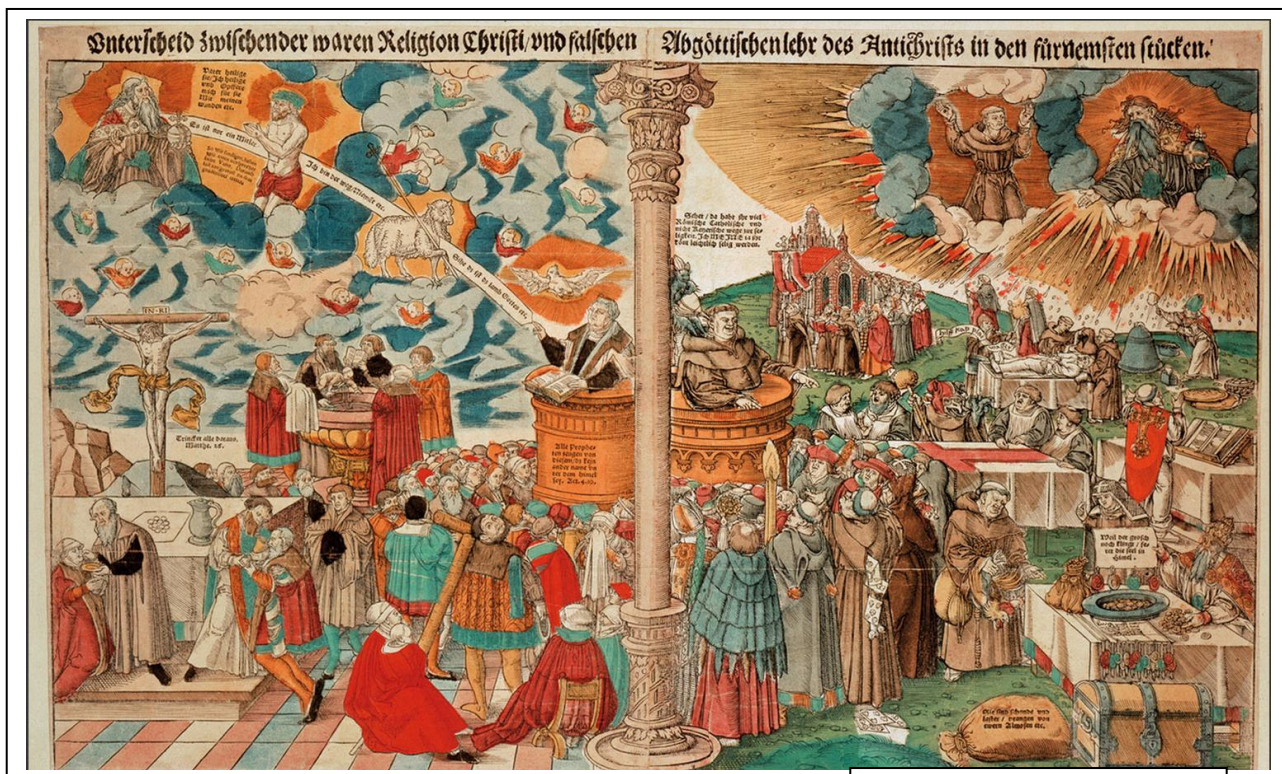 Vnterscheid zwischen der waren Religion Christi/ vnd falschen Abgöttischen lehr des Antichrists in den fürnemsten stücken.
Vater heilige
sie/ Ich heilige
vnd Opffere
mich für sie
Mit meinen
wunden etc.
Es ist nur ein Mitler
Ich bin der weg/
etc.
Sihe da ist dz lamb Gottes etc.
INRI
Trincket alle daraus.
Matthe. 26.
Alle Prophe
ten zeugen von
diesem/ dz kein
ander name vn
ter dem himel
sey. Act. 4.10.
Sehet / da habe ihr viel
Römische Catholische vnd
nicht Ketzerische wege zur se
ligkeit. Ich
könt leichtlich selig werden.
Weil der grosch
noch klingt / fe
rt die seel in
Himel.
schende vnd
laster / prangen von
ewern Almosen etc.